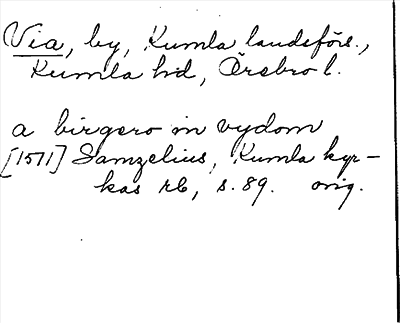 Via, by, Kumla landsförs.,
Kumla hd, Örebro l.
a birgero in vydom
[1571] Samzelius, Kumla kyr-
kas rb, s. 89. orig.